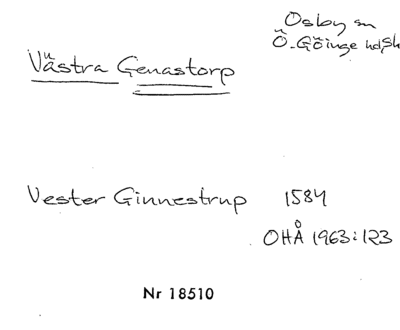 Osby sn
Ö. Göinge hd, Sk
Västra Genastorp
Vester Ginnestrup 1584
OHÅ 1963:123
Nr 18510